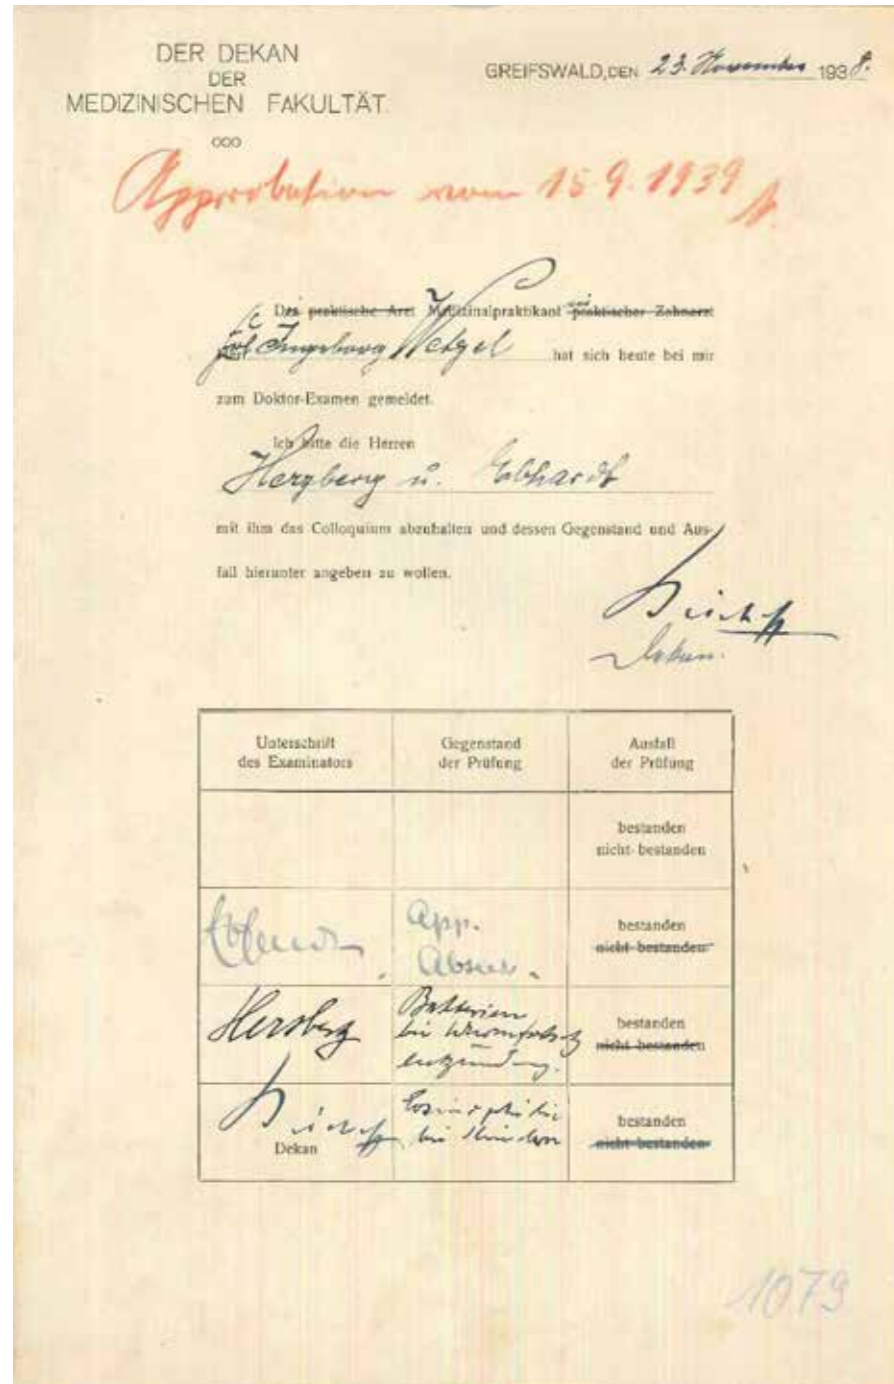 DER DEKAN
DER
MEDIZINISCHEN FAKULTÄT.
ooo
GREIFSWALD, DEN 23. November 1938.
Approbation vom 15.9.1939
Die praktische Arzt Medizinalpraktikantin praktischer Zahnarzt
Frl. Ingeborg Wetzel hat sich heute bei mir
zum Doktor-Examen gemeldet.
Ich bitte die Herren
Herzberg u. Ebhardt
mit ihm das Colloquium abzuhalten und dessen Gegenstand und Aus-
fall hierunter angeben zu wollen.
Dekan.
Unterschrift
des Examinators
Gegenstand
der Prüfung
Ausfall
der Prüfung
bestanden
nicht bestanden
App.
bestanden
nicht bestanden
Herzberg
Bakterien
bei Wurmfortsatz
entzündung.
bestanden
nicht bestanden
Dekan
Eosinophilie
bei Kindern
bestanden
nicht bestanden
1079